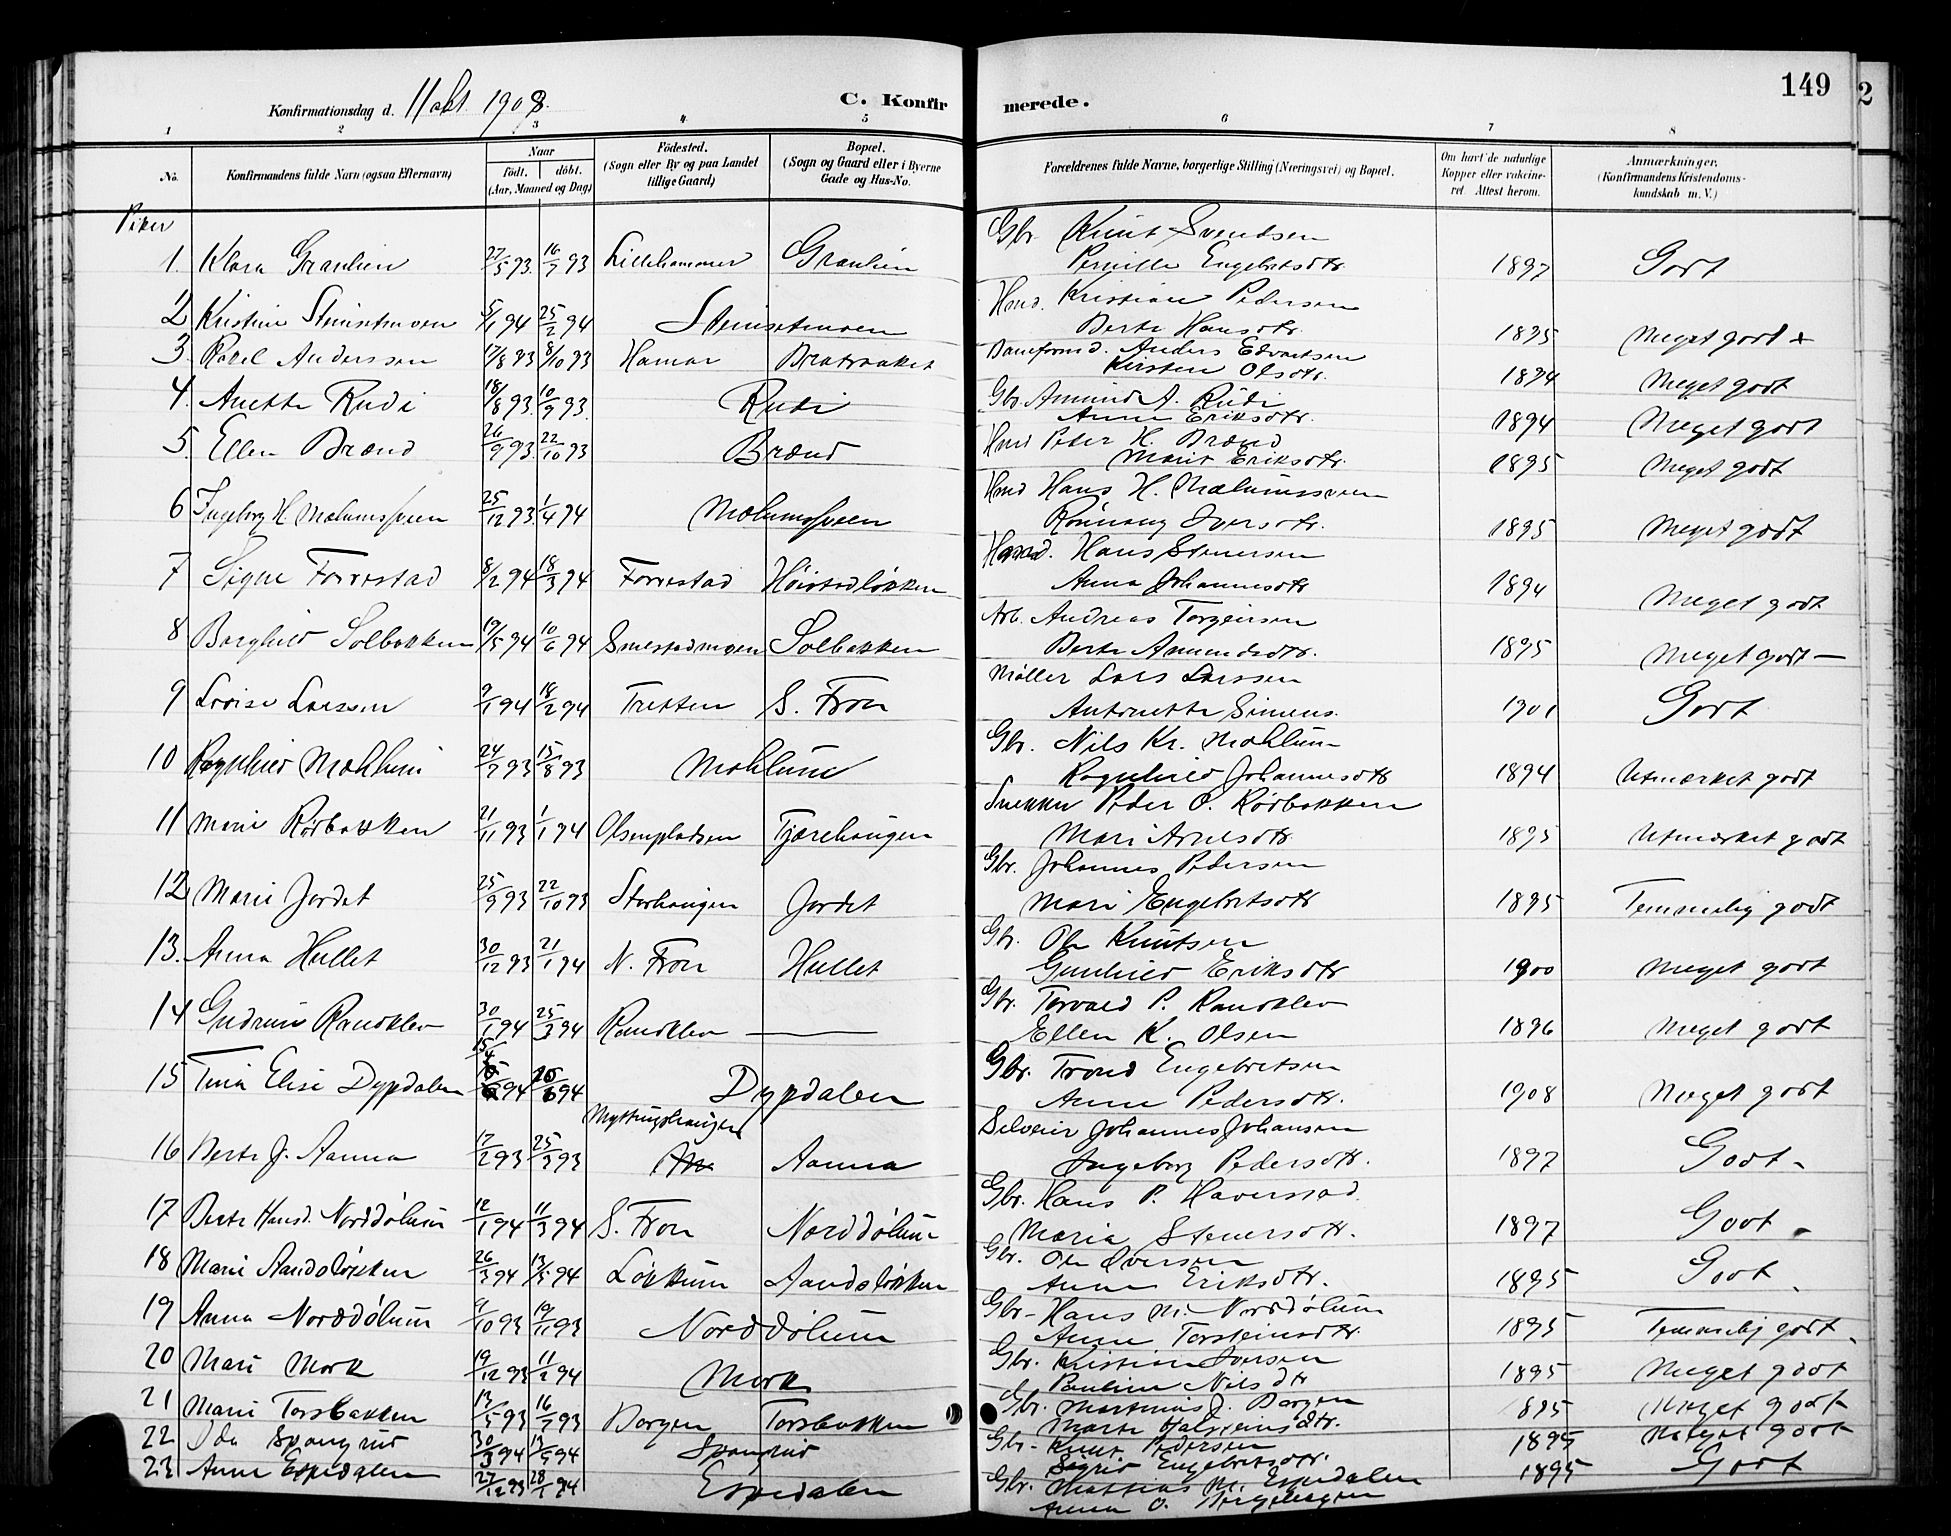 149
2
Konfirmationsdag d. 11 okt 1908.
C. Konfirmerede.
1 2 3 4 5 6 7 8
No. Konfirmandens fulde Navn (ogsaa Efternavn) Naar født. døbt. (Aar, Maaned og Dag) Fødested. (Sogn eller By og paa Landet tillige Gaard) Bopæl. (Sogn og Gaard eller i Byerne Gade og Hus-No. Forældrenes fulde Navne, borgerlige Stilling (Næringsvei) og Bopæl. Om havt de naturlige Kopper eller vakcineret. Attest herom. Anmærkninger. (Konfirmandens Kristendomskundskab m. V.)
Piker
1. Klara Granlien 27/5 93. 16/7 93 Lillehammer Granlien Gbr. Knut Svendsen
Pernille Engebretsdtr. 1897 Godt
2 Kristine Stensetmoen 5/1 94 25/2 94 Stensetmoen Hmd. Kristian Pedersen
Berte Hansdtr. 1895 Meget godt +
3. Rakel Anderssen 17/8 93 8/10 93 Hamar Bratbakket Baneformd. Anders Edvartsen
Kirsten Olsdtr. 1894 Meget godt
4. Anette Rudi 18/8 93. 10/9 93. Rudi Gbr. Amund A. Rudi
Anne Eriksdtr. 1894 Meget godt
5. Ellen Brænd 26/9 93. 22/10 93 Brænd Hmd Peder H. Brænd
Marit Eriksdtr. 1895 Meget godt
6 Ingeborg H Mælumssveen 25/12 93. 1/4 94 Mælumssveen Hmd Hans H. Mælumssveen
Rønnaug Iversdtr. 1895 Meget godt
7 Signe Forrestad 8/2 94 18/3 94 Forrestad Høistadløkken Hans Stenersen
Anna Johannesdtr 1894 Meget godt
8 Borghild Solbakken 19/5 94 10/6 94 Smestadmoen Solbakken Arb. Andreas Torgersen
Berte Amundsdtr. 1895 Meget godt -
9 Lovise Larssen 9/1 94 18/2 94 Tretten S. Fron Møller Lars Larssen
Antonette Simens. 1901 Godt
10 Ragnhild Mæhlum 24/7 93 15/8 93 Mæhlum Gbr. Nils Kr. Mæhlum
Ragnhild Johannesdtr 1894 Utmærket godt
11 Marie Rørbakken 21/11 93 1/1 94 Olsenpladsen Tjærehaugen Snekker Peder O. Rørbakken
Mari Arnesdtr. 1895 Utmærket godt
12 Marie Jordet 25/9 93 22/10 93 Storhaugen Jordet Gbr. Johannes Pedersen
Mari Engebretsdtr 1895 Temmelig godt
13. Anna Hullet 30/12 93 21/1 94 N. Fron Hullet Gbr. Ole Knutsen
Gunhild Eriksdtr 1900 Meget godt
14 Gudrun Randklev 30/1 94 25/3 94 Randklev — Gbr. Torvald P. Randklev
Ellen K. Olsen 1896 Meget godt
15 Tina Elise Dypdalen 15/4 94 94 Dypdalen Gbr. Trond Engebretsen
Anne Pedersdtr. 1908 Meget godt
16 Berte J. Aanna 17/2 93 25/3 93 Myttinghaugen Aanna Selveier Johannes Johansen
Ingeborg Pedersdtr. 1897 Godt.
17 Berte Hansd. Norddølum 12/1 94 11/3 94 S. Fron Norddølum Gbr. Hans P. Haverstad
Maria Stenersdtr. 1897 Godt.
18 Marie Aandsløkken 26/3 94 13/5 94 Løkkum Aandsløkken Gbr. Ole Iversen
Anne Eriksdtr. 1895 Godt.
19 Anna Norddølum 9/10 93 19/11 93 Norddølum Gbr. Hans M. Norddølum
Anne Torsteinsdtr. 1895 Temmelig godt.
20 Mari Mork 19/12 93 11/2 94 Mork Gbr. Kristian Iversen
Pauline Nilsdtr 1895 Meget godt
21 Marie Torsbakken 13/5 93 16/7 93 Borgen Torsbakken Gbr. Martinus J. Borgen
Marte Halsteinsdtr. 1895 Meget godt
22 Ida Spangrud 30/3 94 13/5 94 Spangrud Gbr. Knut Pedersen
Sigrid Engebretsdtr. 1895 Meget godt
23 Anne Espedalen 27/12 93 28/1 94 Espedalen Gbr. Mattias M. Espedalen
Anna O. 1895 Godt